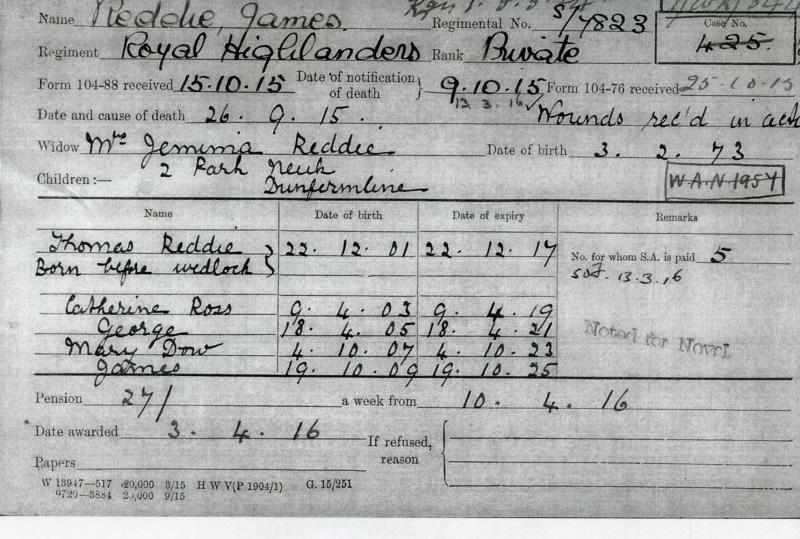 Name Reddie, James. Regimental No. S/7823 Case No. 425.
Regiment Royal Highlanders Rank Private
Form 104-88 received 15.10.15 Date of notification of death } 9.10.15 Form 104-76 received 25.10.15
13.3.16
Date and cause of death 26. 9. 15. Wounds rec'd in
Widow Mrs Jemima Reddie Date of birth 3. 2. 73
2 Park Neuk
Children:— Dunfermline W.A.N 1954
Name Date of birth Date of expiry Remarks
Thomas Reddie } 22. 12. 01 22. 12. 17 No. for whom S.A. is paid 5
Born before wedlock 13.3.16
Catherine Ross 9. 4. 03 9. 4. 19
George 18. 4. 05 18. 4. 21 Noted for Novr
Mary Dow 4. 10. 07 4. 10. 23
James 19. 10. 09 19. 10. 25
Pension 27/ a week from 10. 4. 16
Date awarded 3. 4. 16 If refused, reason {
Papers
W 13947—517 20,000 3/15 H W V(P 1904/1) G. 15/251
9720—3884 9/15